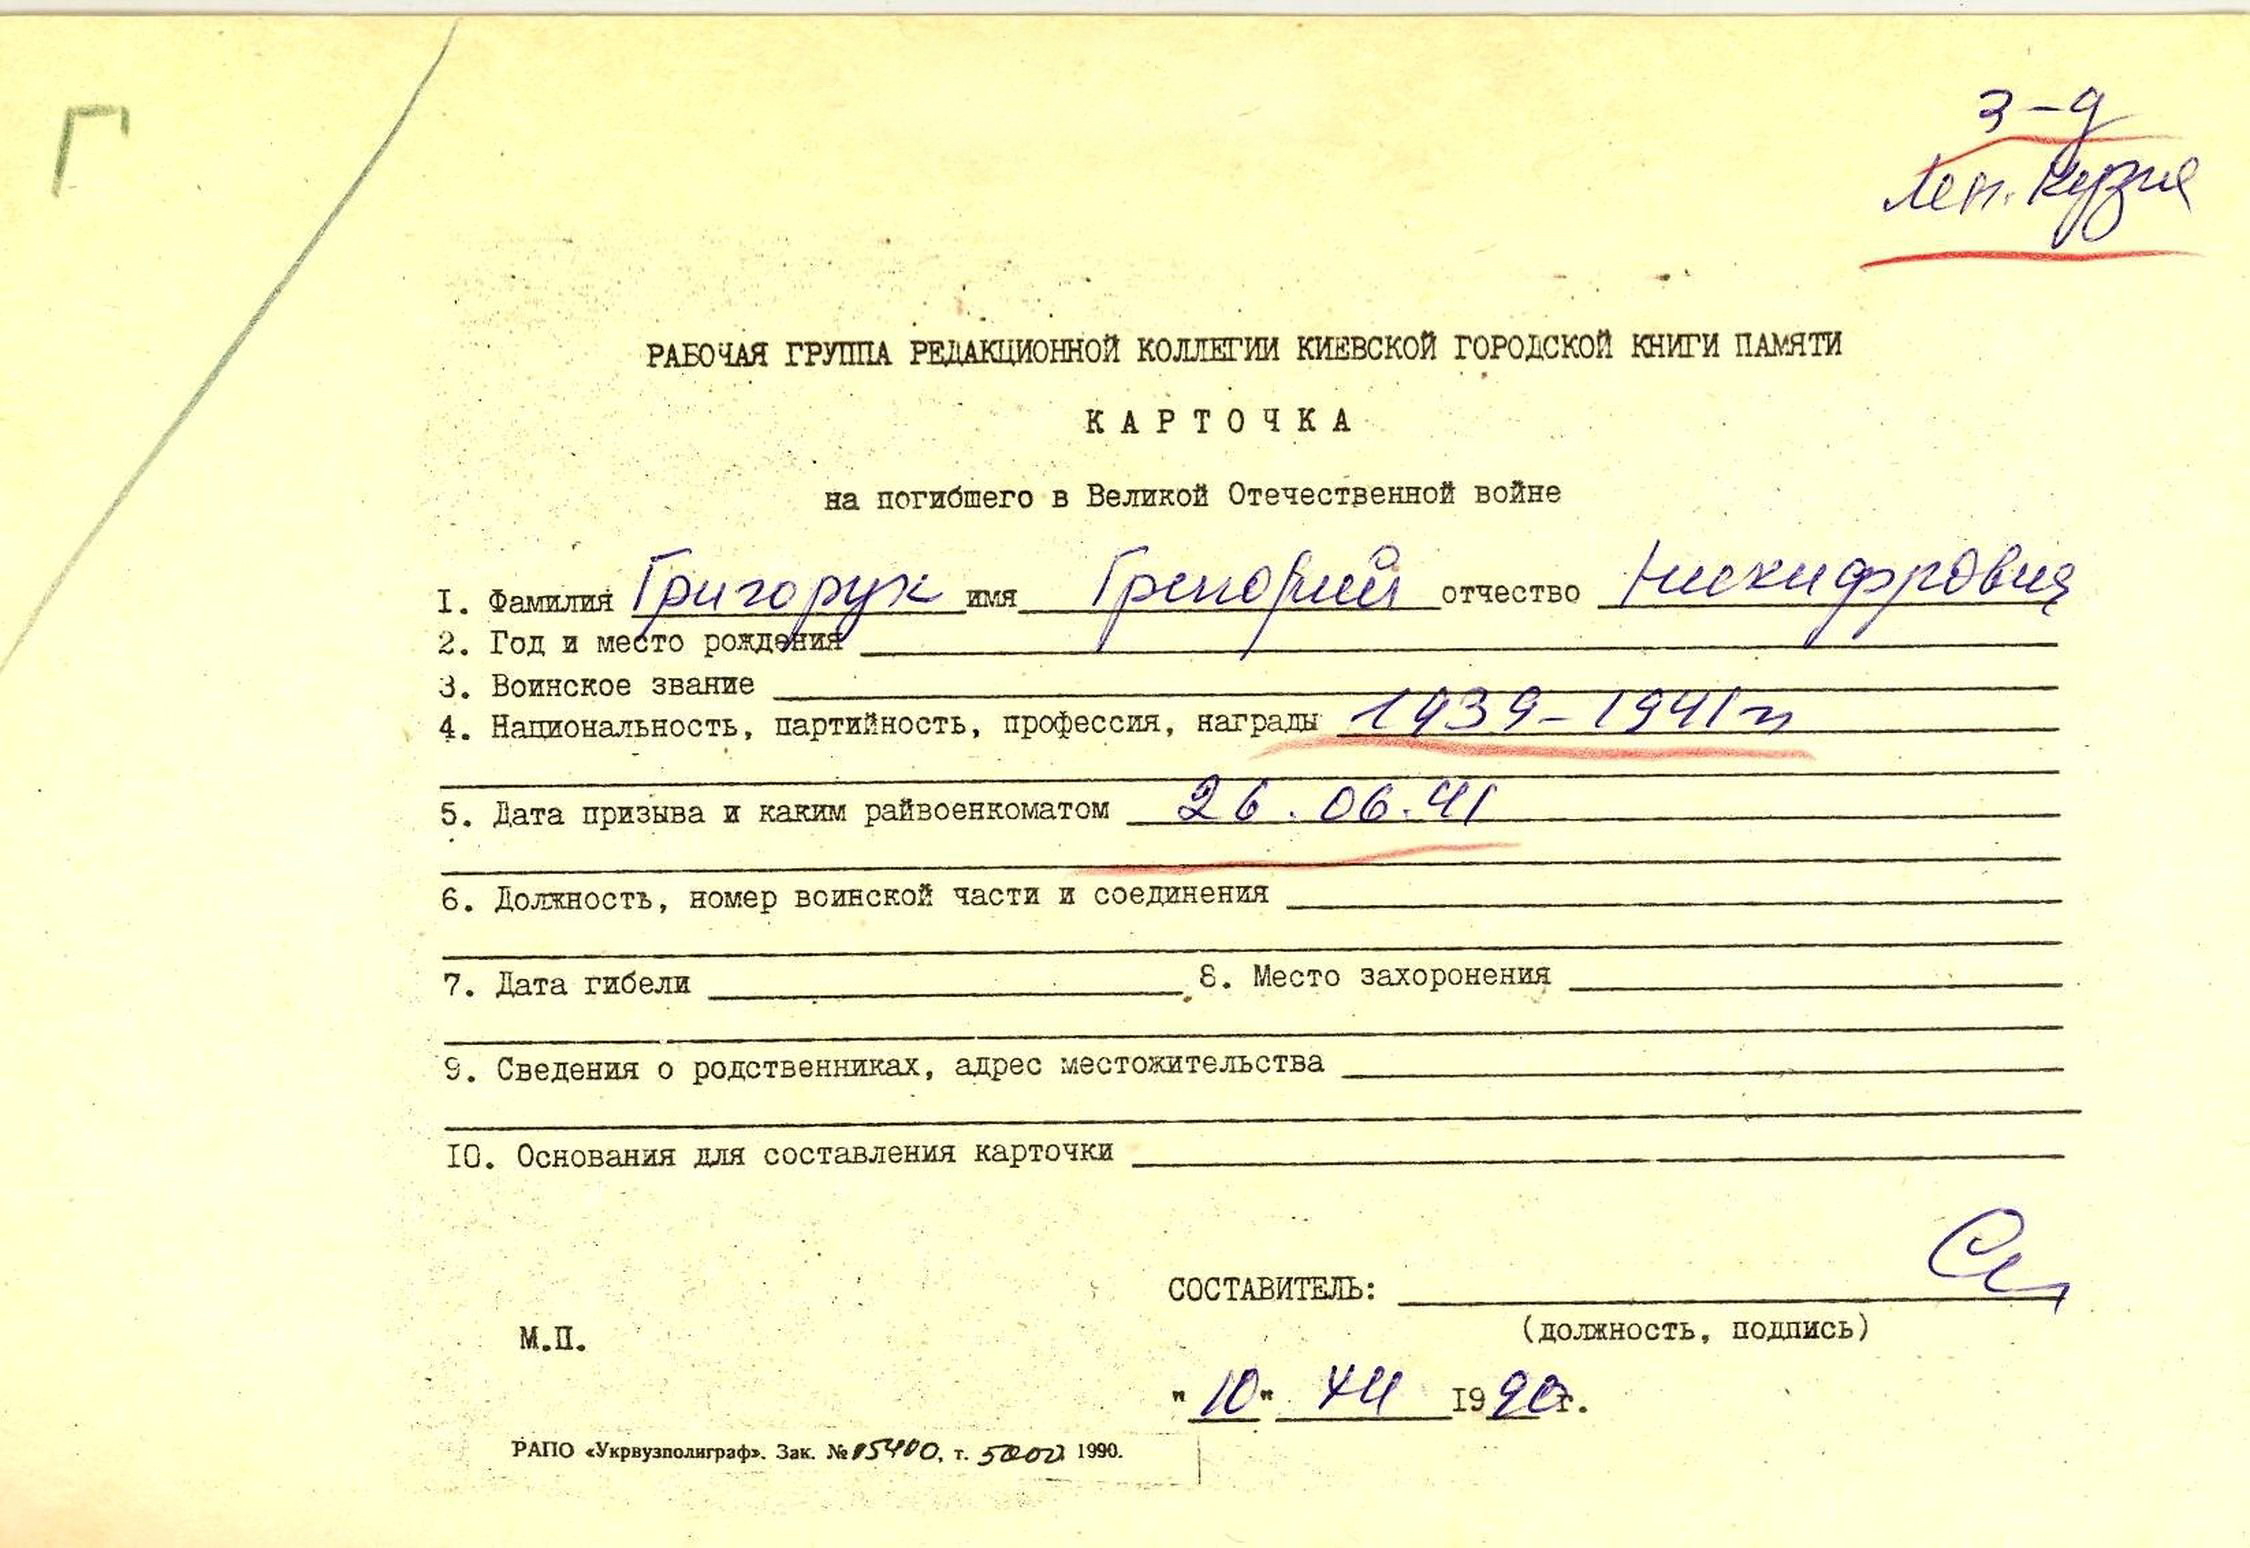 Г
з-д
Лен. Кузня
РАБОЧАЯ ГРУППА РЕДАКЦИОННОЙ КОЛЛЕГИИ КИЕВСКОЙ ГОРОДСКОЙ КНИГИ ПАМЯТИ
КАРТОЧКА
на погибшего в Великой Отечественной войне
I. Фамилия Григорук имя Григорий отчество Никифрович
2. Год и место рождения
3. Воинское звание
4. Национальность, партийность, профессия, награды 1939-1941гг
5. Дата призыва и каким райвоенкоматом 26.06.41
6. Должность, номер воинской части и соединения
7. Дата гибели 8. Место захоронения
9. Сведения о родственниках, адрес местожительства
IO. Основания для составления карточки
СОСТАВИТЕЛЬ:
М.П.
(должность, подпись)
"10" XII 1990г.
РАПО «Укрвузполиграф». Зак. № 05400, т. 5000 1990.